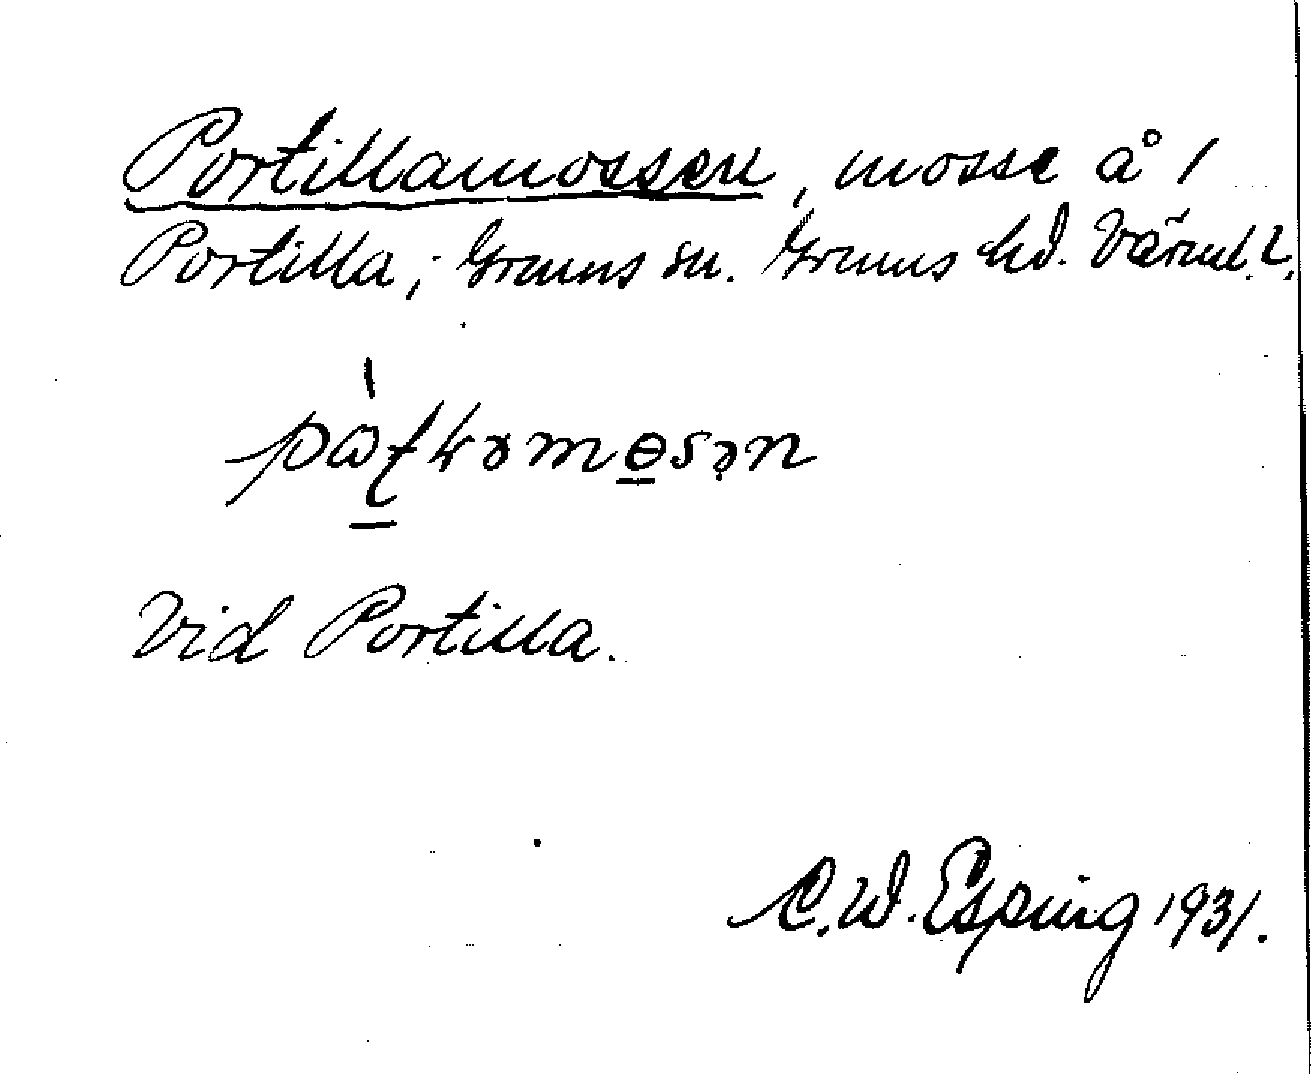 Portillamossen, mosse å 1
Portilla, Grums sn. Grums hd. Värml. l.
Vid Portilla.
C.W. Esping 1931.